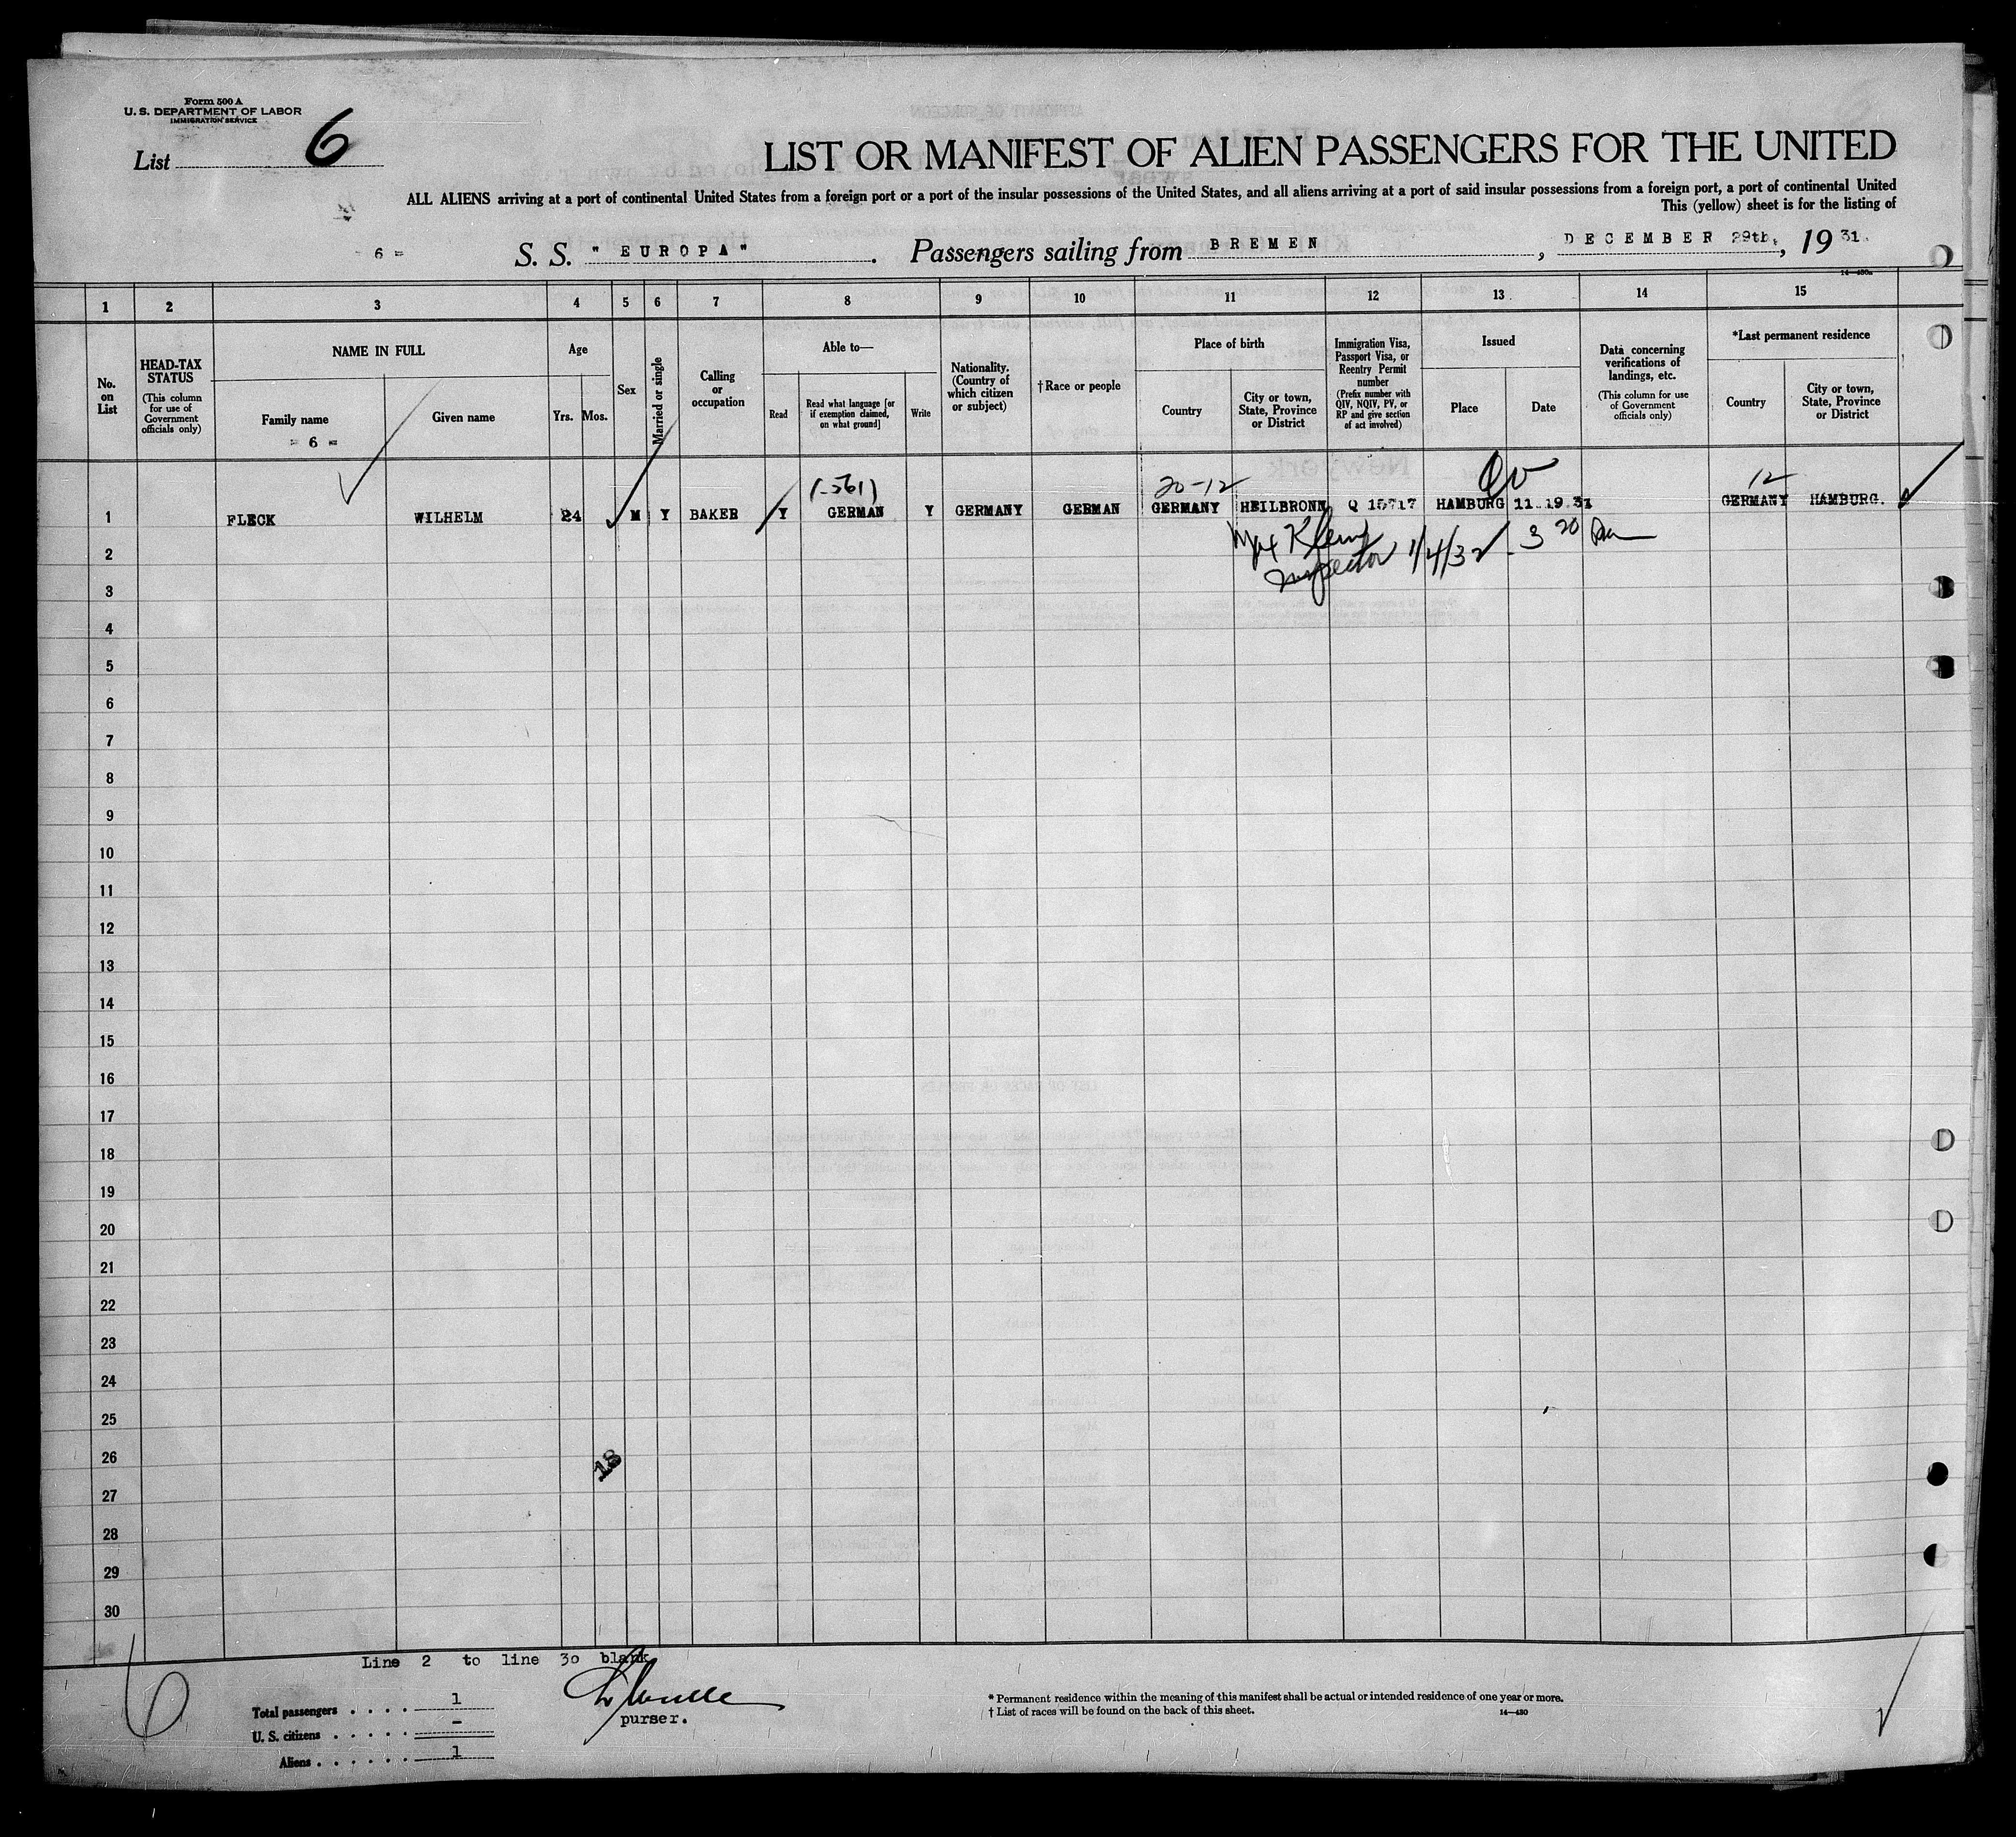 Form 500 A
U. S. DEPARTMENT OF LABOR
IMMIGRATION SERVICE
List 6
LIST OR MANIFEST OF ALIEN PASSENGERS FOR THE UNITED
ALL ALIENS arriving at a port of continental United States from a foreign port or a port of the insular possessions of the United States, and all aliens arriving at a port of said insular possessions from a foreign port, a port of continental United
This (yellow) sheet is for the listing of
- 6 - S. S. "EUROPA". Passengers sailing from BREMEN, DECEMBER 29th, 1931.
14—430a
1 2 3 4 5 6 7 8 9 10 11 12 13 14 15
No. on List
HEAD-TAX STATUS (This column for use of Government officials only)
NAME IN FULL
Family name
- 6 -
Given name
Age
Yrs. Mos.
Sex
Married or single
Calling or occupation
Able to—
Read
Read what language [or if exemption claimed, on what ground]
Write
Nationality. (Country of which citizen or subject)
†Race or people
Place of birth
Country
City or town, State, Province or District
Immigration Visa, Passport Visa, or Reentry Permit number (Prefix number with QIV, NQIV, PV, or RP and give section of act involved)
Issued
Place
Date
Data concerning verifications of landings, etc. (This column for use of Government officials only)
*Last permanent residence
Country
City or town, State, Province or District
(-561) 20-12 QV 12
1 FLECK WILHELM 24 M Y BAKER Y GERMAN Y GERMANY GERMAN GERMANY HEILBRONN Q 15717 HAMBURG 11.19.31 GERMANY HAMBURG.
2 Klein
3 Inspector 1/4/32 - 3 20
4
5
6
7
8
9
10
11
12
13
14
15
16
17
18
19
20
21
22
23
24
25
26 18
27
28
29
30
Line 2 to line 30 blank
6
Total passengers . . . . 1
purser.
U. S. citizens . . . . . –
Aliens . . . . . . 1
* Permanent residence within the meaning of this manifest shall be actual or intended residence of one year or more.
† List of races will be found on the back of this sheet.
14—430